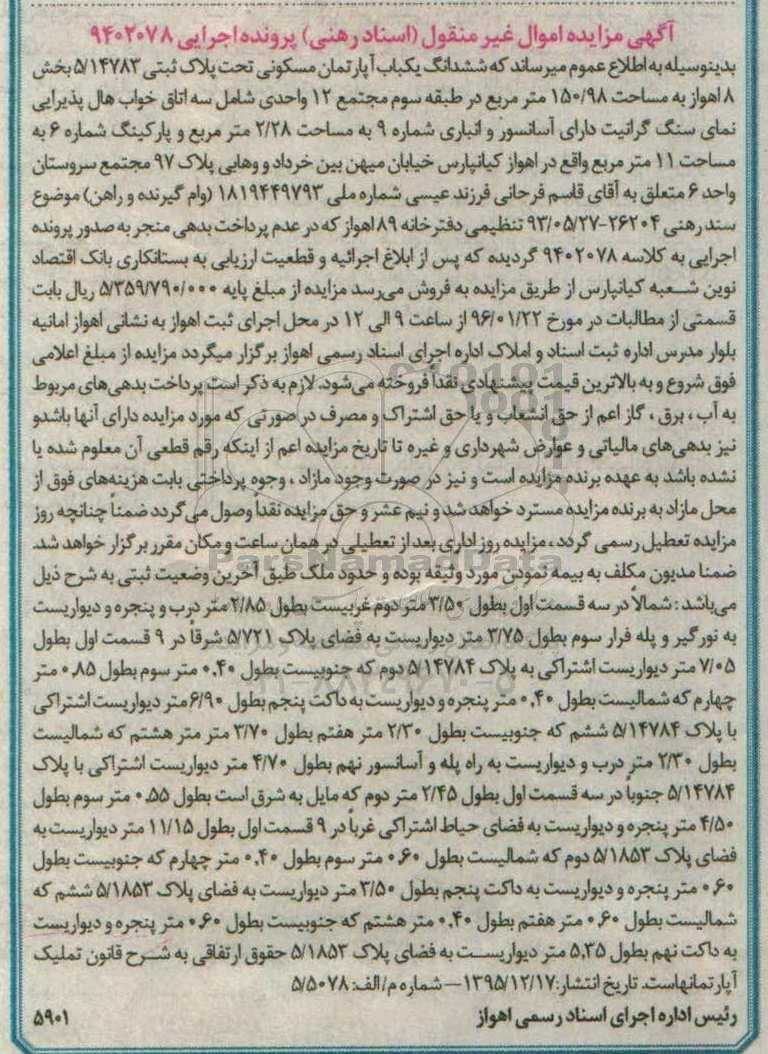 آگهی مزایده اموال غیر منقول (اسناد رهنی) پرونده اجرایی ۹۴۰۲۰۷۸
بدینوسیله به اطلاع عموم میرساند که ششدانگ یکباب آپارتمان مسکونی تحت پلاک ثبتی ۵/۱۴۷۸۳ بخش
۸ اهواز به مساحت ۱۵۰/۹۸ متر مربع در طبقه سوم مجتمع ۱۲ واحدی شامل سه اتاق خواب هال پذیرایی
نمای سنگ گرانیت دارای آسانسور و انباری شماره ۹ به مساحت ۲/۲۸ متر مربع و پارکینگ شماره ۶ به
مساحت ۱۱ متر مربع واقع در اهواز کیانپارس خیابان میهن بین خرداد و وهابی پلاک ۹۷ مجتمع سروستان
واحد ۶ متعلق به آقای قاسم فرحانی فرزند عیسی شماره ملی ۱۸۱۹۴۴۹۷۹۳ (وام گیرنده و راهن) موضوع
سند رهنی ۲۶۲۰۴-۹۳/۰۵/۲۷ تنظیمی دفترخانه ۸۹ اهواز که در عدم پرداخت بدهی منجر به صدور پرونده
اجرایی به کلاسه ۹۴۰۲۰۷۸ گردیده که پس از ابلاغ اجرائیه و قطعیت ارزیابی به بستانکاری بانک اقتصاد
نوین شعبه کیانپارس از طریق مزایده به فروش می‌رسد مزایده از مبلغ پایه ۵/۳۵۹/۷۹۰/۰۰۰ ریال بابت
قسمتی از مطالبات در مورخ ۹۶/۰۱/۲۲ از ساعت ۹ الی ۱۲ در محل اجرای ثبت اهواز به نشانی اهواز امانیه
بلوار مدرس اداره ثبت اسناد و املاک اداره اجرای اسناد رسمی اهواز برگزار میگردد مزایده از مبلغ اعلامی
فوق شروع و به بالاترین قیمت پیشنهادی نقداً فروخته می‌شود. لازم به ذکر است پرداخت بدهی‌های مربوط
به آب ، برق ، گاز اعم از حق انشعاب و یا حق اشتراک و مصرف در صورتی که مورد مزایده دارای آنها باشدو
نیز بدهی‌های مالیاتی و عوارض شهرداری و غیره تا تاریخ مزایده اعم از اینکه رقم قطعی آن معلوم شده یا
نشده باشد به عهده برنده مزایده است و نیز در صورت وجود مازاد ، وجوه پرداختی بابت هزینه‌های فوق از
محل مازاد به برنده مزایده مسترد خواهد شد و نیم عشر و حق مزایده نقداً وصول می گردد ضمناً چنانچه روز
مزایده تعطیل رسمی گردد ، مزایده روز اداری بعد از تعطیلی در همان ساعت و مکان مقرر برگزار خواهد شد.
ضمنا مدیون مکلف به بیمه نمودن مورد وثیقه بوده و حدود ملک طبق آخرین وضعیت ثبتی به شرح ذیل
می‌باشد : شمالاً در سه قسمت اول بطول ۳/۵۰ متر دوم غربیست بطول ۲/۸۵ متر درب و پنجره و دیواریست
به نورگیر و پله فرار سوم بطول ۳/۷۵ متر دیواریست به فضای پلاک ۵/۷۲۱ شرقاً در ۹ قسمت اول بطول
۷/۰۵ متر دیواریست اشتراکی به پلاک ۵/۱۴۷۸۴ دوم که جنوبیست بطول ۰.۴۰ متر سوم بطول ۰.۸۵ متر
چهارم که شمالیست بطول ۰.۴۰ متر پنجره و دیواریست به داکت پنجم بطول ۶/۹۰ متر دیواریست اشتراکی
با پلاک ۵/۱۴۷۸۴ ششم که جنوبیست بطول ۲/۳۰ متر هفتم بطول ۳/۷۰ متر متر هشتم که شمالیست
بطول ۲/۳۰ متر درب و دیواریست به راه پله و آسانسور نهم بطول ۴/۷۰ متر دیواریست اشتراکی با پلاک
۵/۱۴۷۸۴ جنوباً در سه قسمت اول بطول ۲/۴۵ متر دوم که مایل به شرق است بطول ۰.۵۵ متر سوم بطول
۴/۵۰ متر پنجره و دیواریست به فضای حیاط اشتراکی غرباً در ۹ قسمت اول بطول ۱۱/۱۵ متر دیواریست به
فضای پلاک ۵/۱۸۵۳ دوم که شمالیست بطول ۰.۶۰ متر سوم بطول ۰.۴۰ متر چهارم که جنوبیست بطول
۰.۶۰ متر پنجره و دیواریست به داکت پنجم بطول ۳/۵۰ متر دیواریست به فضای پلاک ۵/۱۸۵۳ ششم که
شمالیست بطول ۰.۶۰ متر هفتم بطول ۰.۴۰ متر هشتم که جنوبیست بطول ۰.۶۰ متر پنجره و دیواریست
به داکت نهم بطول ۵.۳۵ متر دیواریست به فضای پلاک ۵/۱۸۵۳ حقوق ارتفاقی به شرح قانون تملیک
آپارتمانهاست. تاریخ انتشار: ۱۳۹۵/۱۲/۱۷ – شماره م/الف: ۵/۵۰۷۸
رئیس اداره اجرای اسناد رسمی اهواز ۵۹۰۱
ParsNamadData